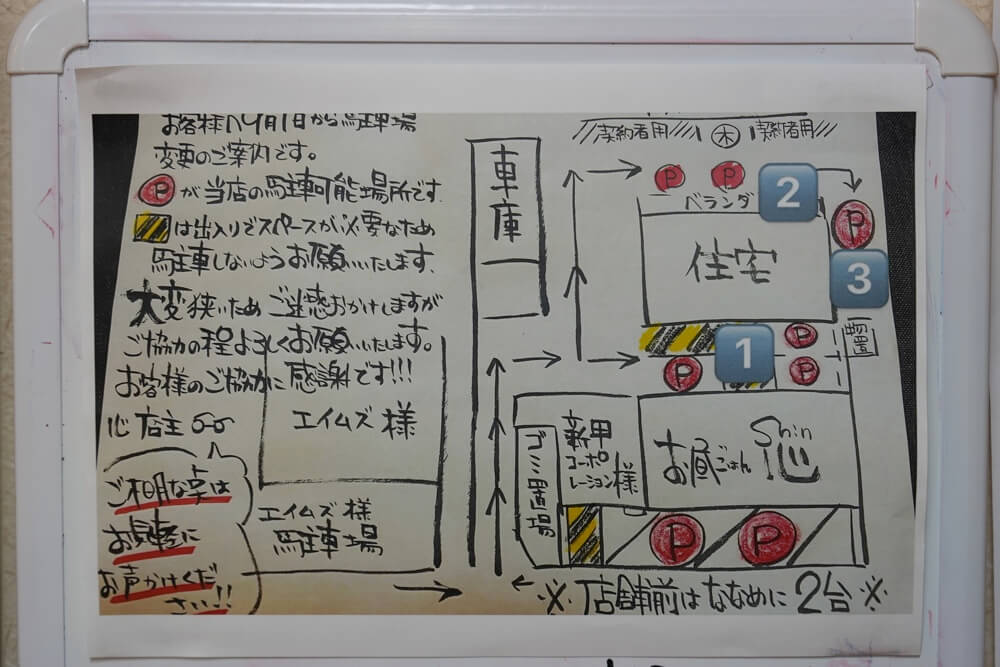 お客様へ4月1日から駐車場
変更のご案内です。
Pが当店の駐車可能場所です
は出入りでスペースが必要なため
駐車しないようお願いいたします。
大変狭いためご迷惑おかけしますが
ご協力の程よろしくお願いいたします。
お客様のご協力に感謝です!!!
心店主
ご不明な点は
お気軽に
お声かけくだ
さい!!
エイムズ様
エイムズ様
駐車場
車庫
契約者用
木
契約者用
P
P
2
P
ベランダ
住宅
3
1
P
物置
P
P
ゴミ置場
新甲
コーポ
レーション様
お昼ごはん
Shin
心
P
P
※店舗前はななめに2台※